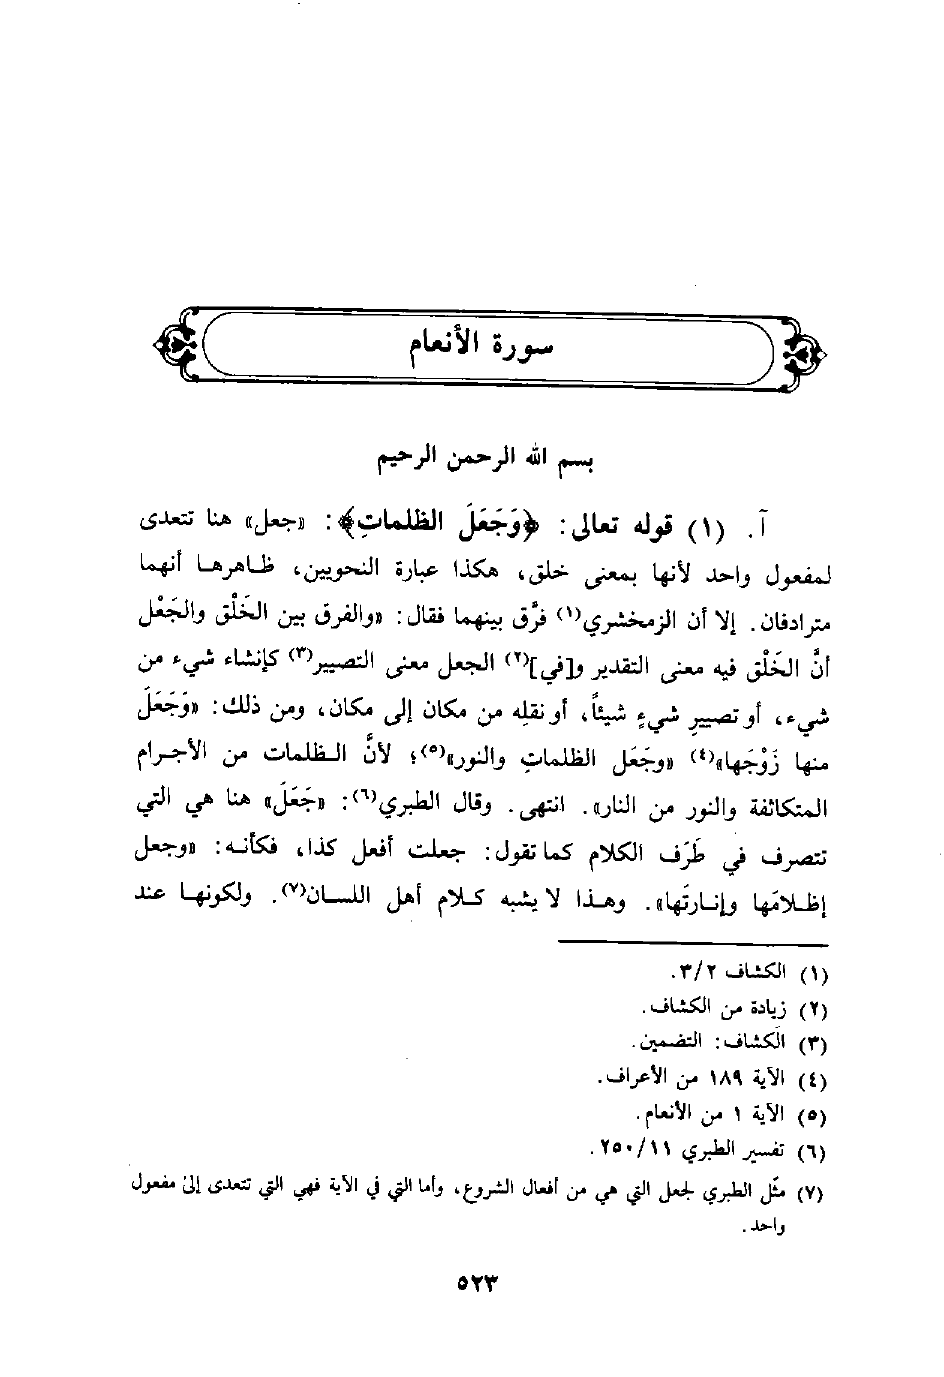 سورة الأنعام
بسم الله الرحمن الرحيم
آ. (١) قوله تعالى: ﴿وَجَعَلَ الظلماتِ﴾: «جعل» هنا تتعدى
لمفعول واحد لأنها بمعنى خلق، هكذا عبارة النحويين، ظاهرها أنهما
مترادفان. إلا أن الزمخشري(١) فرَّق بينهما فقال: «والفرق بين الخَلْق والجَعْل
أنَّ الخَلْق فيه معنى التقدير و[في](٢) الجعل معنى التصيير(٣) كإنشاء شيء من
شيء، أو تصييرِ شيءٍ شيئاً، أو نقلِه من مكان إلى مكان، ومن ذلك: «وَجَعَلَ
منها زَوْجَها»(٤) «وجَعَل الظلماتِ والنور»(٥)؛ لأنَّ الظلمات من الأجرام
المتكاثفة والنور من النار». انتهى. وقال الطبري(٦): «جَعَلَ» هنا هي التي
تتصرف في طَرَف الكلام كما تقول: جعلت أفعل كذا، فكأنه: «وجعل
إظلامَها وإنارتَها». وهذا لا يشبه كلام أهل اللسان(٧). ولكونها عند
(١) الكشاف ٣/٢.
(٢) زيادة من الكشاف.
(٣) الكشاف: التضمين.
(٤) الآية ١٨٩ من الأعراف.
(٥) الآية ١ من الأنعام.
(٦) تفسير الطبري ٢٥٠/١١.
(٧) مثّل الطبري لجعل التي هي من أفعال الشروع، وأما التي في الآية فهي التي تتعدى إلىٰ مفعول
واحد.
٥٢٣